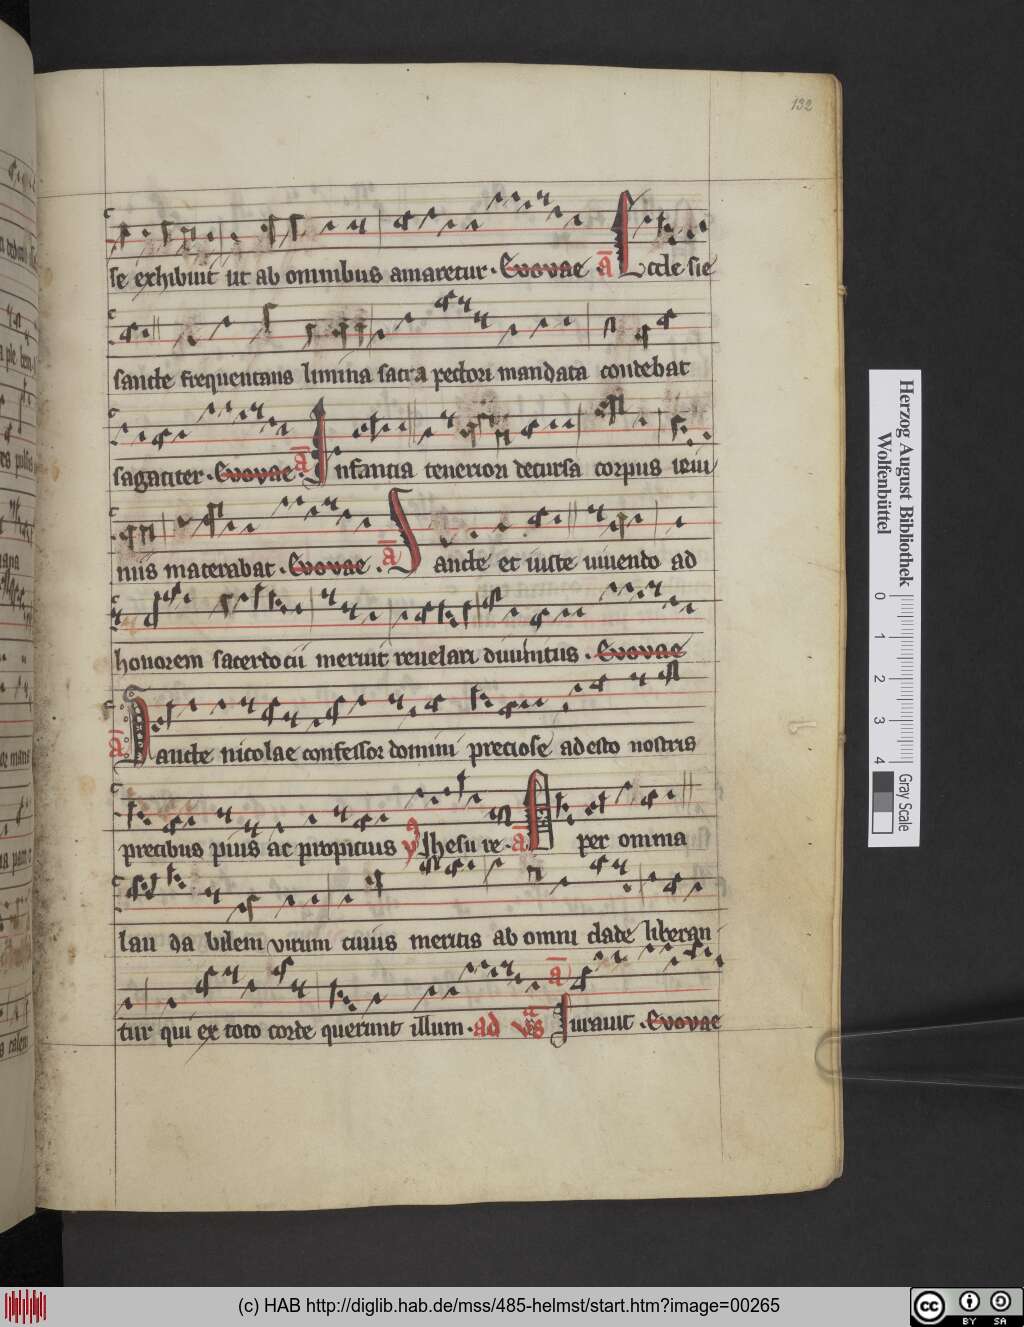 132
se exhibuit ut ab omnibus amaretur. Euouae. a Eccle sie
sancte frequentans limina sacra pectori mandata condebat
sagaciter. Euouae. a Infantia teneriori decursa corpus ieiu
niis macerabat. Euouae. a Sancte et iuste uiuendo ad
honorem sacerdocii meruit reuelari diuinitus. Euouae
a Sancte nicolae confessor domini preciose adesto nostris
precibus pius ac propicius v Jhesu re. a per omnia
lau da bilem virum cuius meritis ab omni clade liberan
tur qui ex toto corde querunt illum. ad a Jurauit. Euouae
Herzog August Bibliothek
Wolfenbüttel
0 1 2 3 4
Gray Scale
(c) HAB http://diglib.hab.de/mss/485-helmst/start.htm?image=00265
cc BY SA